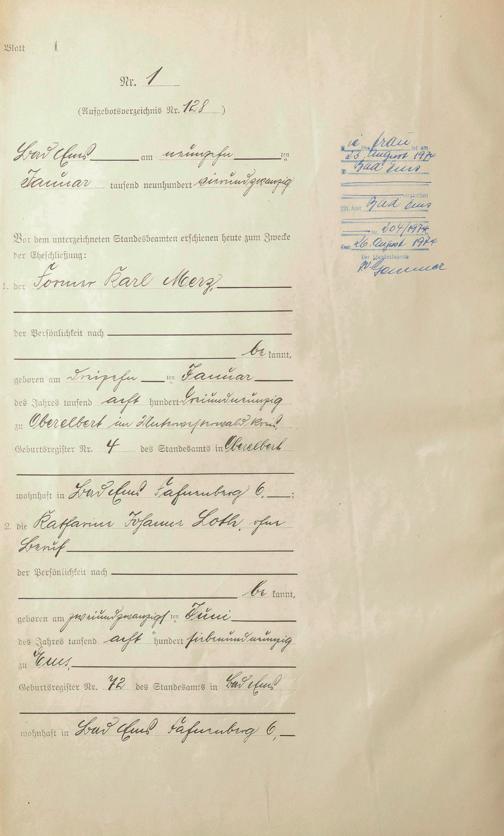 Blatt 1
Nr. 1
(Aufgebotsverzeichnis Nr. 128)
Bad Ems am neunzehn ten
Januar tausend neunhundert vierundzwanzig
Vor dem unterzeichneten Standesbeamten erschienen heute zum Zwecke
der Eheschließung:
1. der Former Karl Merz,
der Persönlichkeit nach
be kannt,
geboren am dreizehn ten Januar
des Jahres tausend acht hundert dreiundneunzig
zu Oberelbert im Unterwesterwaldkreis
Geburtsregister Nr. 4 des Standesamts in Oberelbert
wohnhaft in Bad Ems Fahnenberg 6,
2. die Katharine Johanna Loth, ohne
Beruf
der Persönlichkeit nach
be kannt,
geboren am zweiundzwanzigsten Juni
des Jahres tausend acht hundert siebenundneunzig
zu Ems,
Geburtsregister Nr. 72 des Standesamts in Bad Ems
wohnhaft in Bad Ems Fahnenberg 6,
frau ist am
23. August 1974
in Bad Ems
Bad Ems
Nr. 204/1974
26. August 1974
Der Standesbeamte